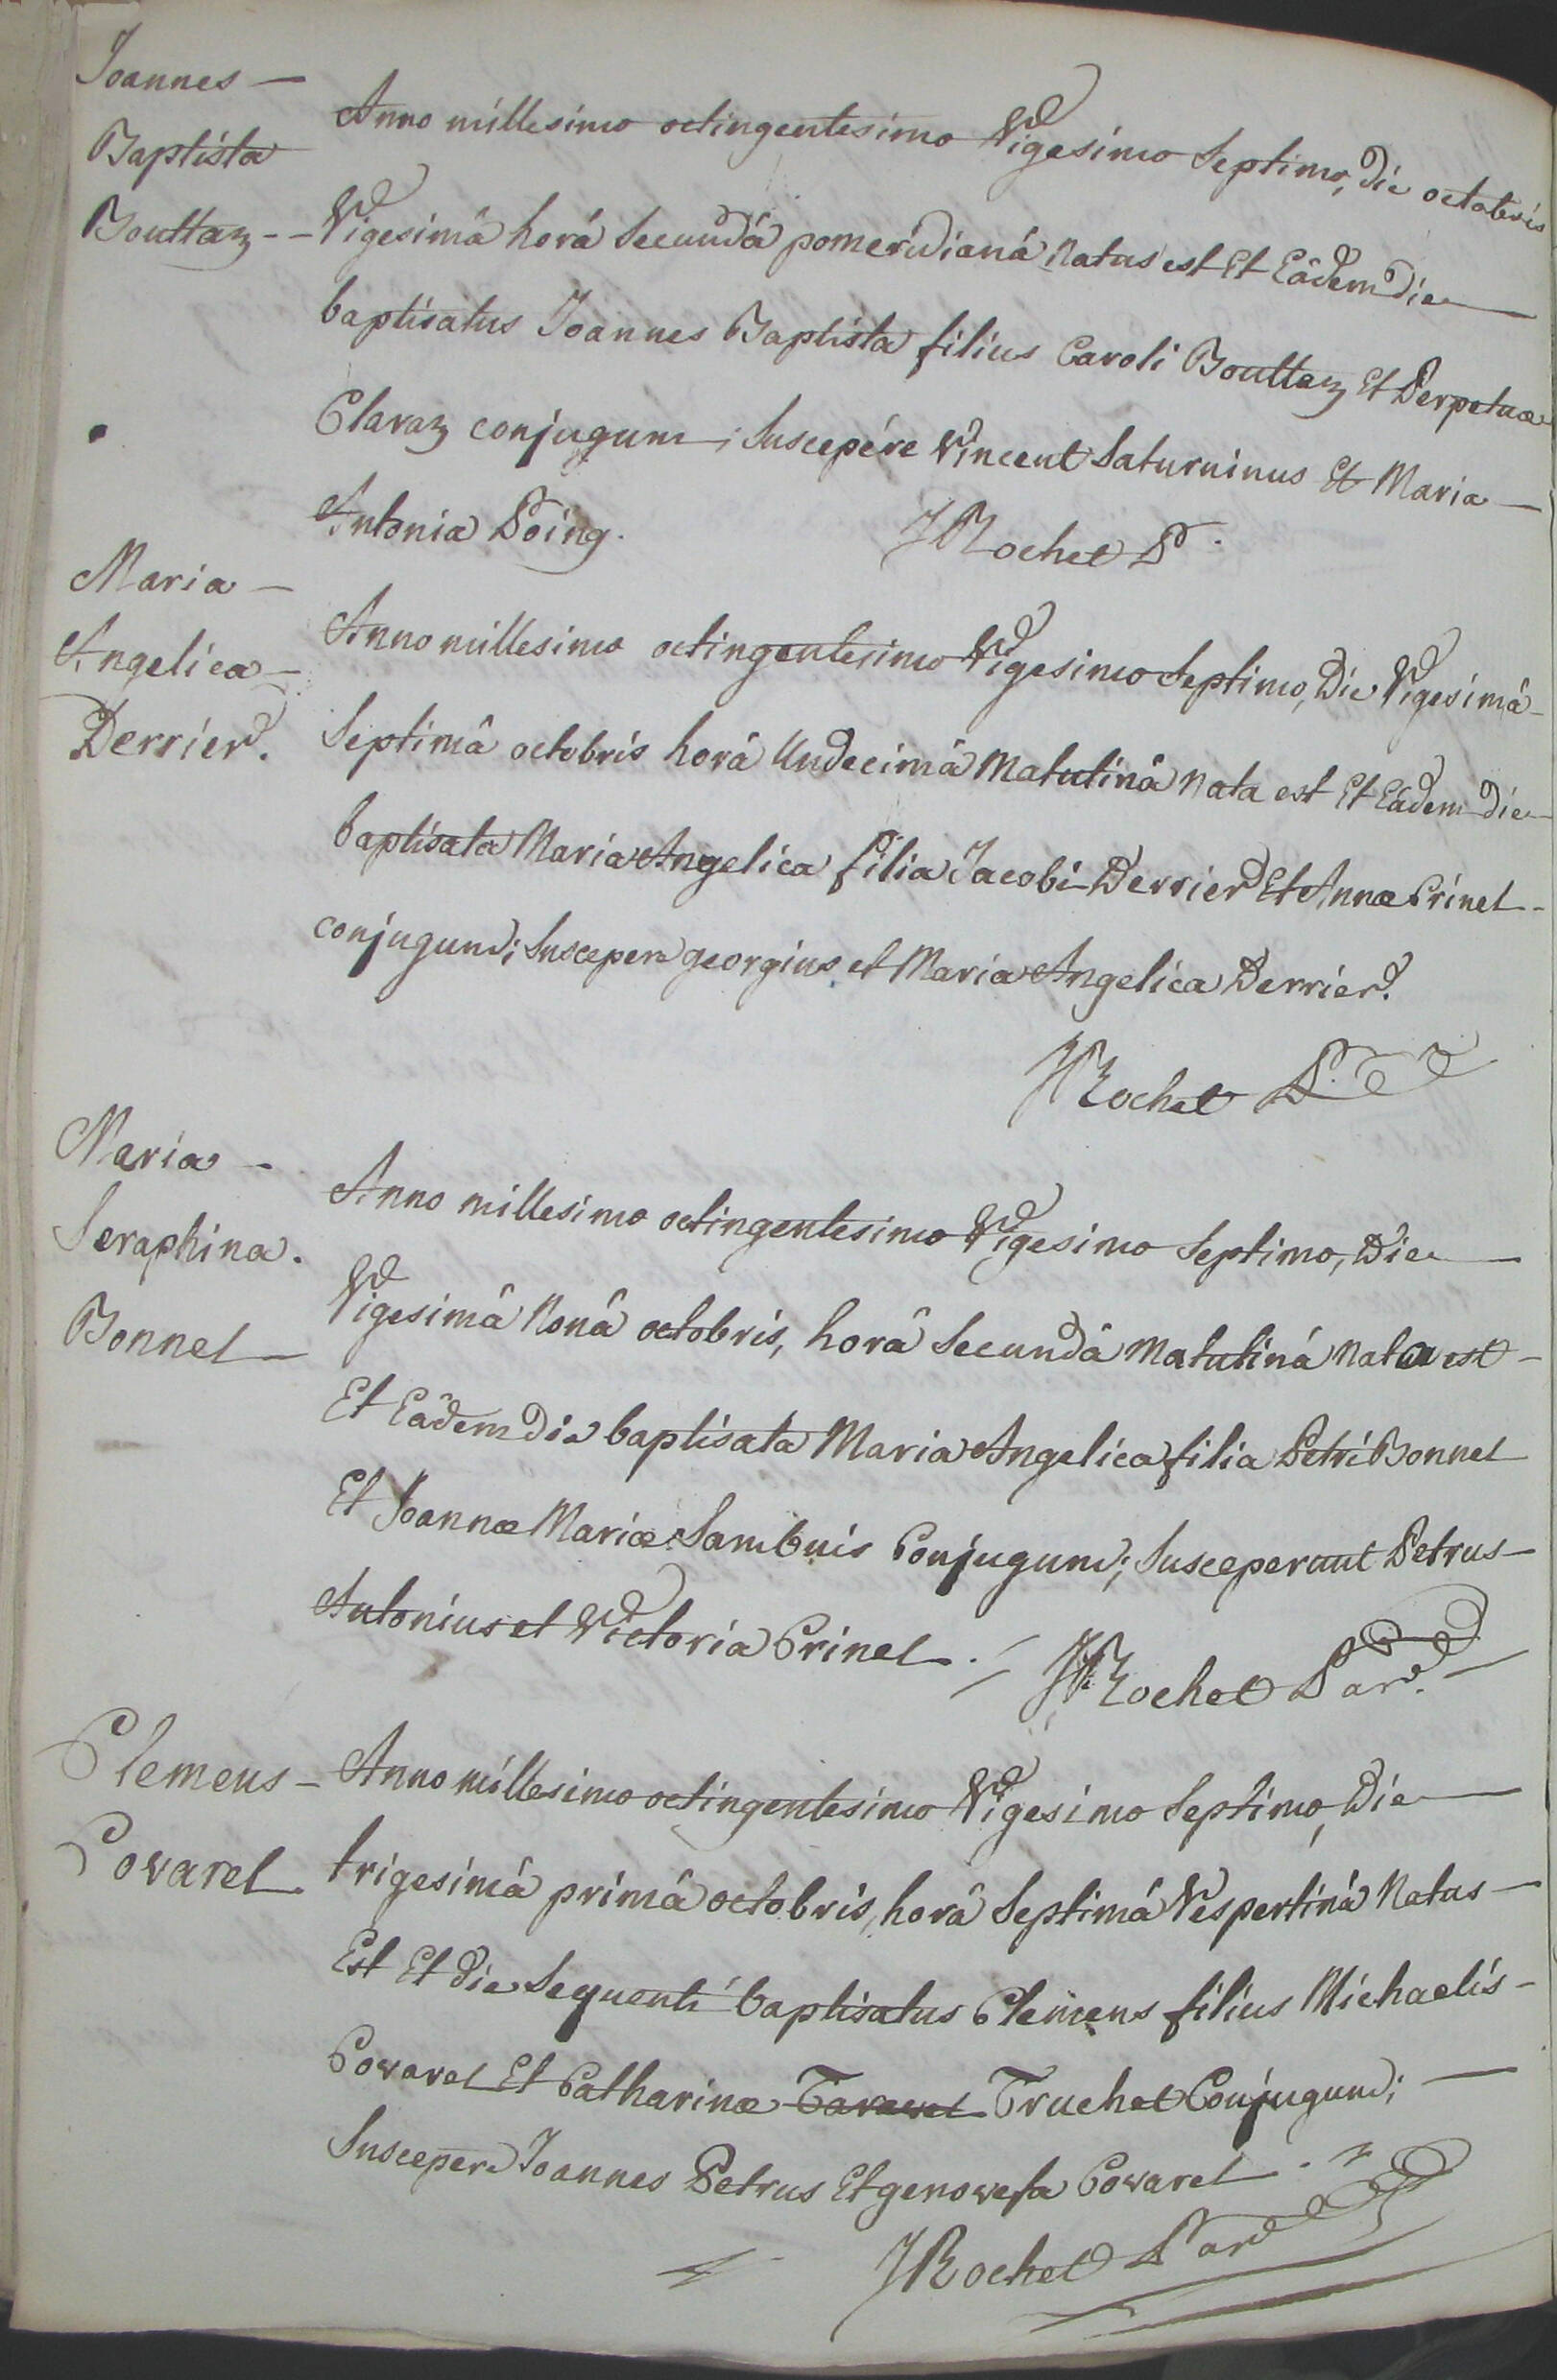 Joannes —
Baptista
Bouttaz - -
Anno millesimo octingentesimo Vigesimo Septimo, die octobris
Vigesimâ horâ Secundâ pomeridianâ natus est Et Eâdem die
baptisatus Joannes Baptista filius Caroli Bouttaz Et Perpetuæ
Claraz conjugum; Suscepére Vincent Saturninus Et Maria —
Antonia Poing.
JRochet P.
Maria —
Angelica —
Derrier.
Anno millesimo octingentesimo Vigesimo Septimo, Die Vigesimâ
Septimâ octobris horâ Undecimâ Matutinâ Nata est Et Eâdem die
baptisata Maria Angelica filia Jacobi Derrier Et Annæ Crinel
conjugum; Suscepere georgius et Maria Angelica Derrier.
JRochet P.
Maria —
Seraphina.
Bonnel —
Anno millesimo octingentesimo Vigesimo Septimo, Die
Vigesimâ Nonâ octobris, horâ Secundâ Matutinâ Nata est
Et Eâdem die baptisata Maria Angelica filia Petri Bonnel
Et Joannæ Mariæ Sambuis Conjugum; Susceperunt Petrus —
Antonius et Victoria Crinel.
JRochet Par.
Clemens —
Covarel
Anno millesimo octingentesimo Vigesimo Septimo, Die
trigesimâ primâ octobris, horâ Septimâ Vespertinâ Natus —
Est Et die Sequenti baptisatus Clemens filius Michaelis —
Covarel Et Catharinæ Truchet Conjugum; —
Suscepere Joannes Petrus Et genovefa Covarel.
JRochet Par